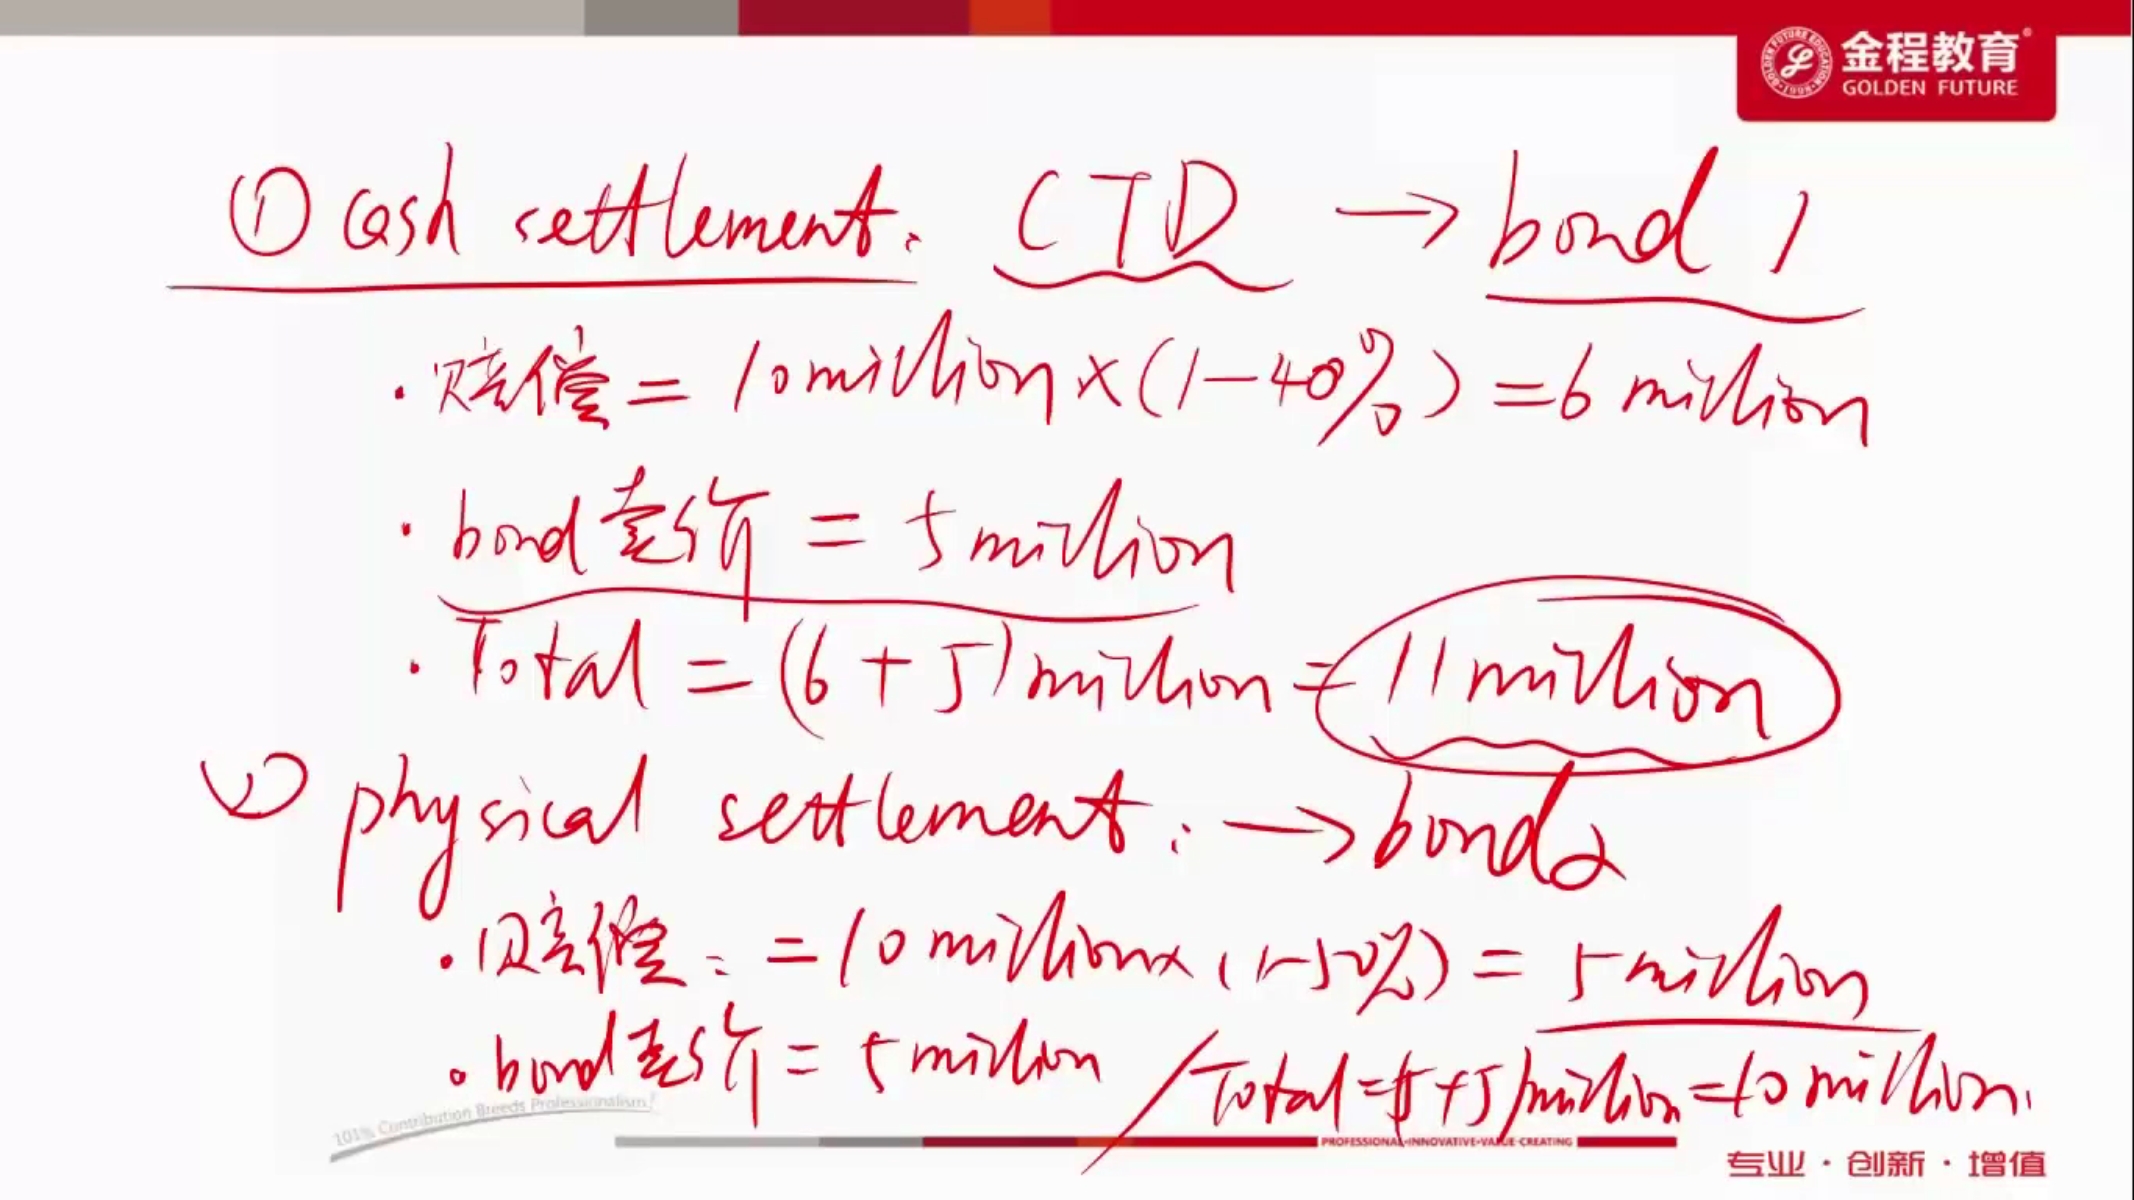 金程教育®
GOLDEN FUTURE
① cash settlement: CTD → bond 1
· 赔偿 = 10 million × (1-40%) = 6 million
· bond 卖价 = 5 million
· Total = (6+5) million = 11 million
② physical settlement: → bond 2
· 赔偿: = 10 million × (1-50%) = 5 million
· bond 卖价 = 5 million / Total = (5+5) million = 10 million.
101% Contribution Breeds Professionalism!
PROFESSIONAL·INNOVATIVE·VALUE-CREATING
专业·创新·增值